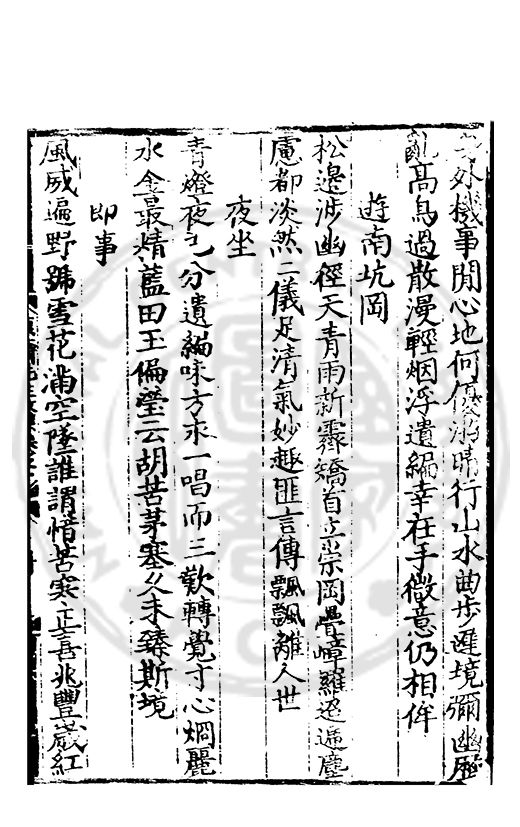 外機事閒心地何優游晴行山水曲步進境彌幽歷
亂高鳥過散漫輕烟浮遺編幸在手微意仍相侔
遊南坑岡
松邊涉幽徑天青雨新霽矯首立崇岡疊嶂羅迢遞塵
慮都淡然二儀足清氣妙趣匪言傳飄飄離人世
夜坐
青燈夜已分遺編味方永一唱而三歎轉覺寸心炯麗
水金最精藍田玉偏瑩云胡苦茅塞久未臻斯境
即事
風威遍野號雪花滿空墜誰謂惜苦寒正喜兆豐歲紅